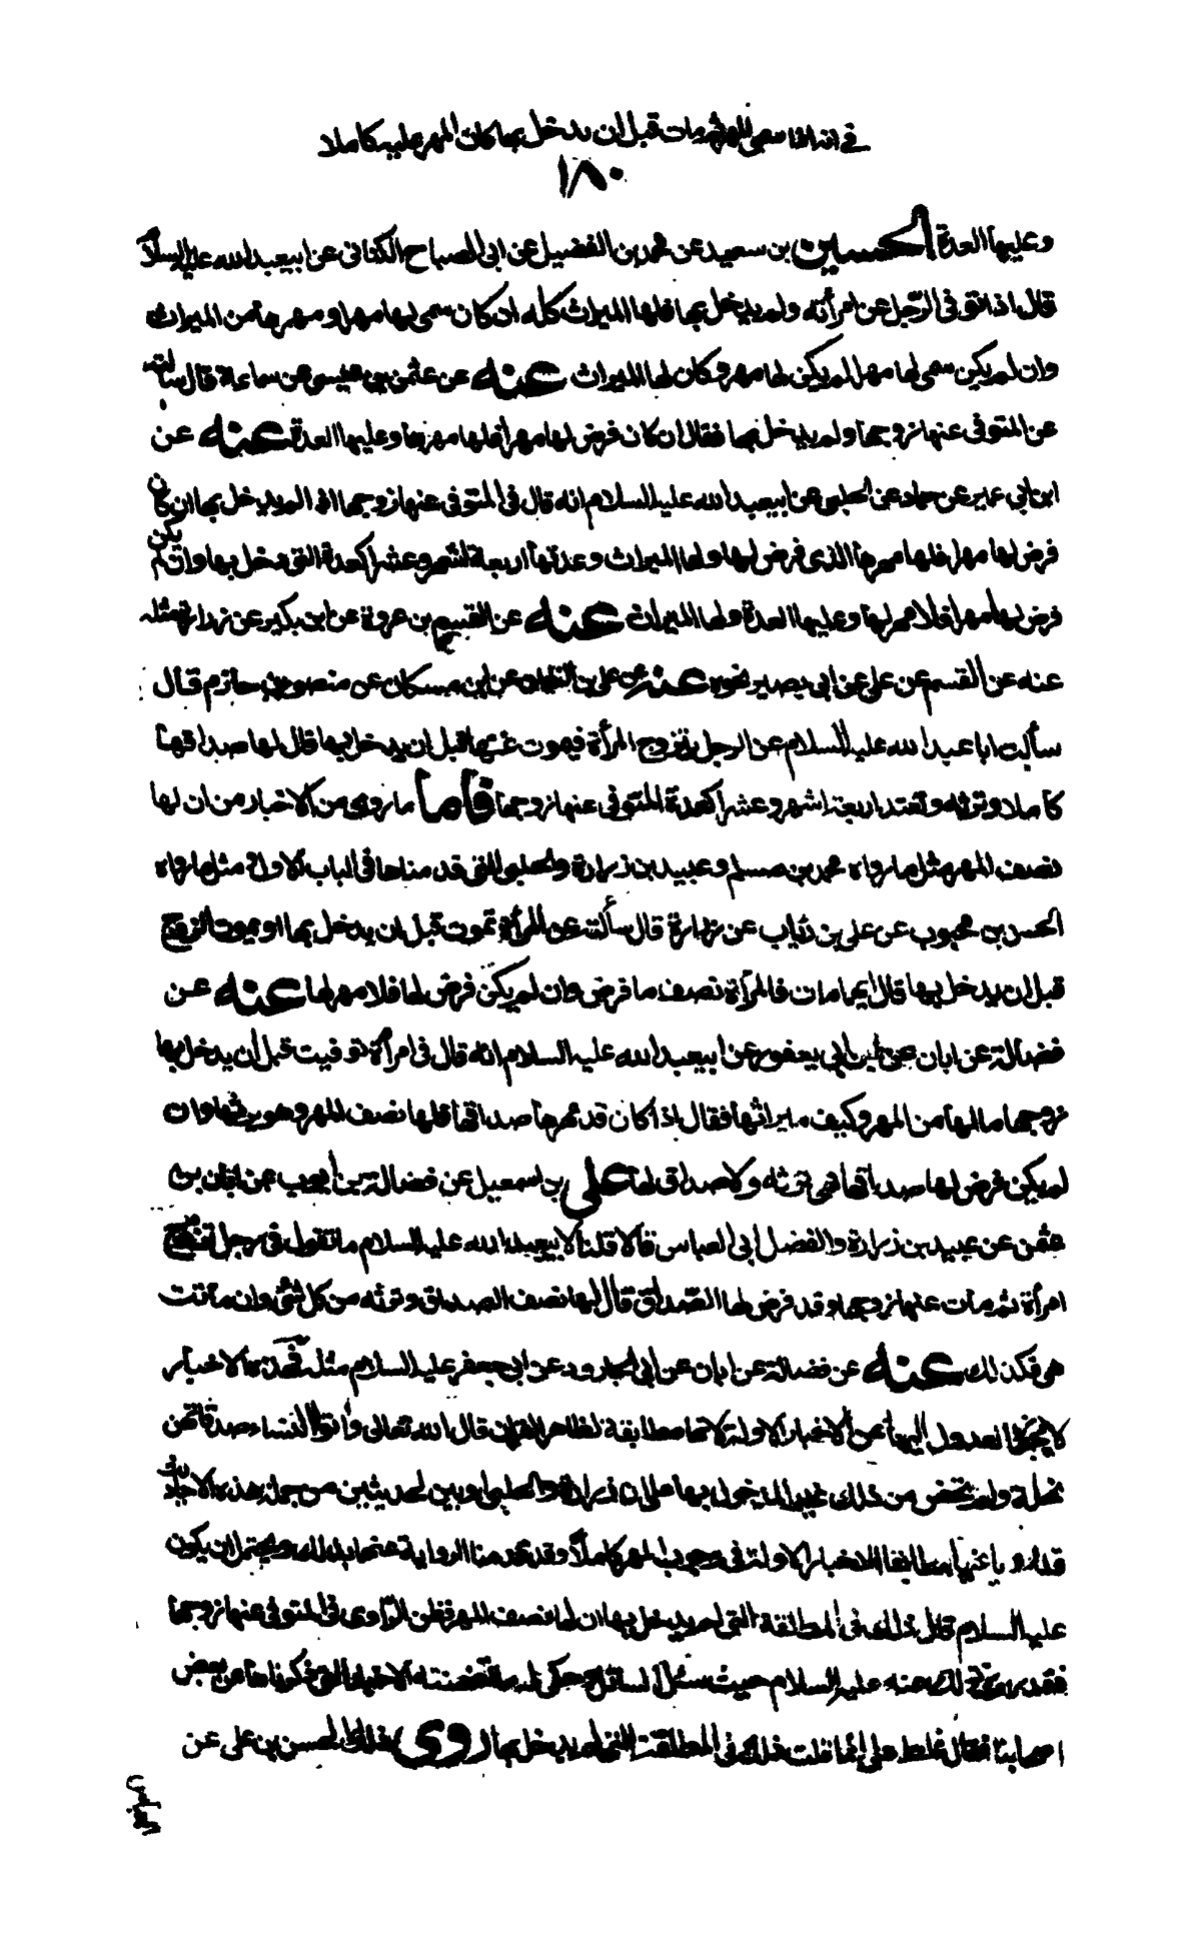 في انه اذا سمى المهر ثم مات قبل ان يدخل بها كان المهر عليه كاملا
١٨٠
وعليها العدة الحسين بن سعيد عن محمد بن الفضيل عن ابي الصباح الكناني عن ابيعبد الله عليه السلام
قال اذا توفى الرّجل عن امرأته ولم يدخل بها فلها الميراث كله ان كان سمى لها مهرا ومهرها من الميراث
وان لم يكن سمى لها مهرا لم يكن لها مهر وكان لها الميراث عنه عن عثمن بن عيسى عن سماعة قال سالته
عن المتوفى عنها زوجها ولم يدخل بها فقال ان كان فرض لها مهرا فلها مهرها وعليها العدة عنه عن
ابن ابي عمير عن حماد عن الحلبي عن ابيعبد الله عليه السلام انه قال في المتوفى عنها زوجها اذا لم يدخل بها ان كان
فرض لها مهرا فلها مهرها الذي فرض لها ولها الميراث وعدتها اربعة اشهر وعشرا كعدة التي دخل بها وان لم يكن
فرض لها مهرا فلا مهر لها وعليها العدة ولها الميراث عنه عن القسيم بن عروة عن ابن بكير عن زرارة مثله
عنه عن القسم عن علي عن ابي بصير نحوه عنه عن علي بن النعمان عن ابن مسكان عن منصور بن حازم قال
سألت ابا عبد الله عليه السلام عن الرجل يتزوج المرأة فيموت عنها قبل ان يدخل بها قال لها صداقها
كاملا وترثه وتعتد اربعة اشهر وعشرا كعدة المتوفى عنها زوجها فاما ما روي من الاخبار من ان لها
نصف المهر مثل ما رواه محمد بن مسلم وعبيد بن زرارة والحلبي التي قدمناها في الباب الاول مثل ما رواه
الحسن بن محبوب عن علي بن رئاب عن زرارة قال سألته عن المرأة تموت قبل ان يدخل بها او يموت الزوج
قبل ان يدخل بها قال ايهما مات فللمرأة نصف ما فرض وان لم يكن فرض لها فلا مهر لها عنه عن
فضالة عن ابان عن ابن ابي يعفور عن ابيعبد الله عليه السلام انه قال في امرأة توفيت قبل ان يدخل بها
زوجها مالها من المهر وكيف ميراثها فقال اذا كان قد مهرها صداقها فلها نصف المهر وهو يرثها وان
لم يكن فرض لها صداقها فهي ترثه ولا صداق لها علي بن اسمعيل عن فضالة بن ايوب عن ابان بن
عثمن عن عبيد بن زرارة والفضل ابي العباس قالا قلنا لابيعبد الله عليه السلام ما تقول في رجل تزوج
امرأة ثم مات عنها زوجها وقد فرض لها الصّداق قال لها نصف الصداق وترثه من كل شئ وان ماتت
هي فكذلك عنه عن فضالة عن ابان عن ابي الجارود عن ابي جعفر عليه السلام مثله فهذه الاخبار
لا يجوز العدول اليها عن الاخبار الاولة لانها مطابقة لظاهر القران قال الله تعالى وأتوا النساء صدقاتهن
نحلة ولم يخص من ذلك غير المدخول بها على ان زرارة والحلبي راويين لحديثين من جملة هذه الاحاديث
قد رويا عنهما مطابقا للاخبار الاولة في وجوب المهر كاملا وقد قدمنا الرواية عنهما بذلك ويحتمل ان يكون
عليه السلام قال ذلك في المطلقة التي لم يدخل بها ان لها نصف المهر فظن الرّاوي في المتوفى عنها زوجها
فقد روي ذلك عنه عليه السلام حيث سئل السائل وحكى له ما تضمنته الاخبار التي ذكرناها عن بعض
اصحابنا فقال غلط علي انما قلت ذلك في المطلقة التي لم يدخل بها روى ذلك الحسن بن علي عن